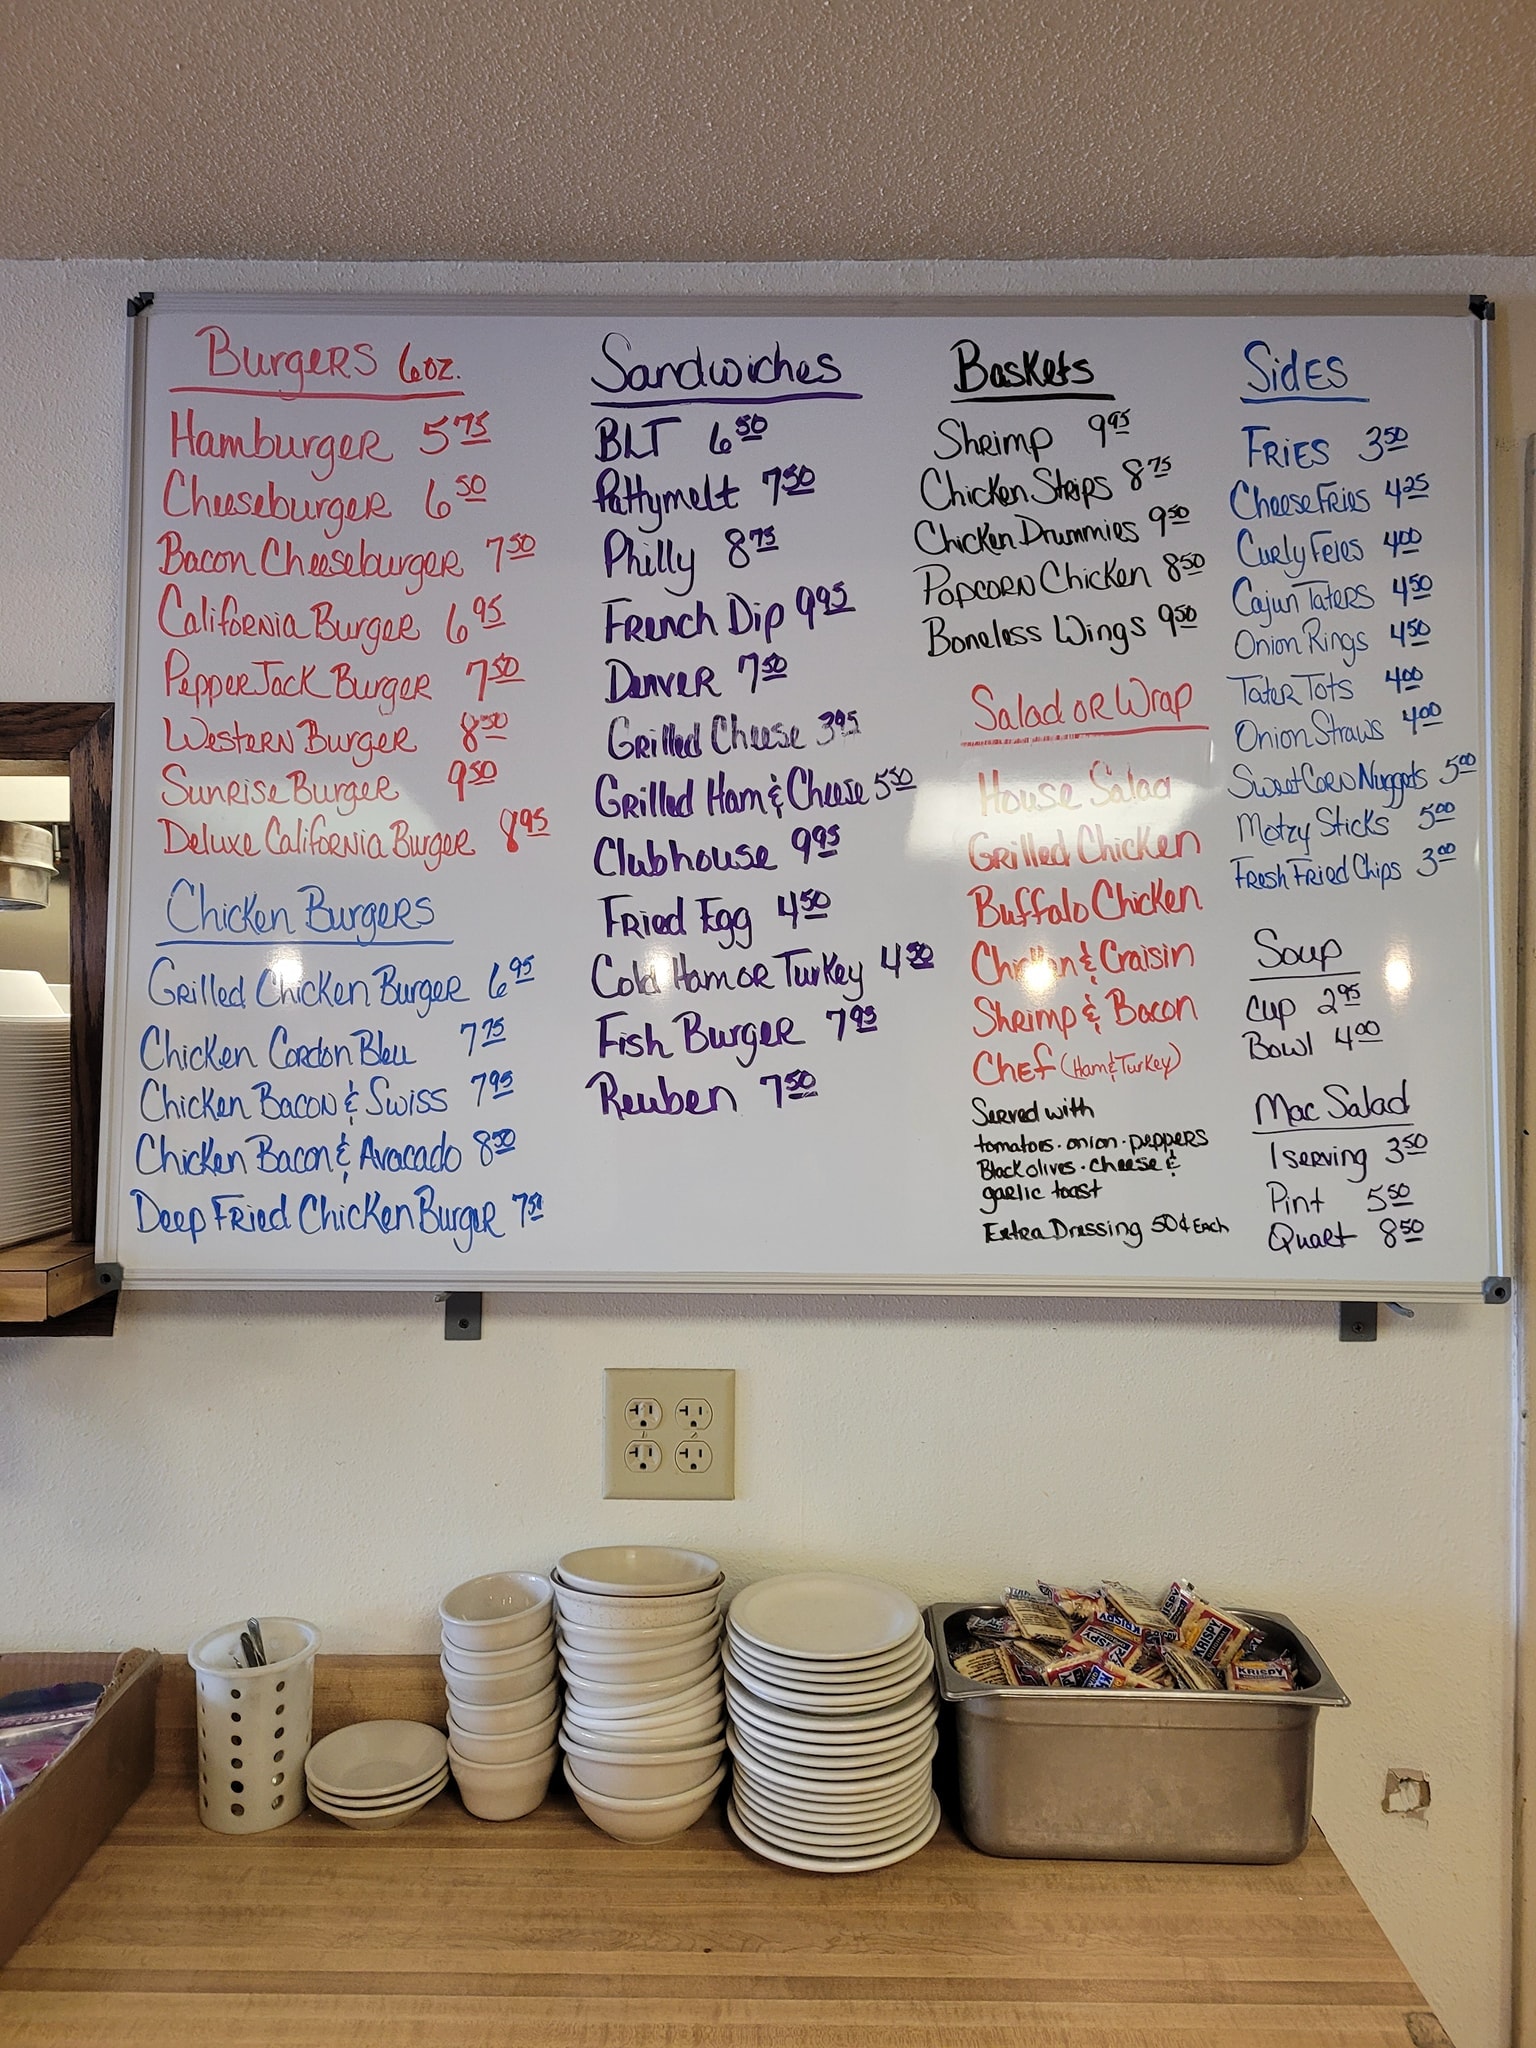 Burgers 6oz.
Hamburger 5.75
Cheeseburger 6.50
Bacon Cheeseburger 7.50
California Burger 6.95
Pepper Jack Burger 7.50
Western Burger 8.50
Sunrise Burger 9.50
Deluxe California Burger 8.95
Chicken Burgers
Grilled Chicken Burger 6.95
Chicken Cordon Bleu 7.75
Chicken Bacon & Swiss 7.95
Chicken Bacon & Avacado 8.50
Deep Fried Chicken Burger 7.50
Sandwiches
BLT 6.50
Pattymelt 7.50
Philly 8.75
French Dip 9.95
Denver 7.50
Grilled Cheese 3.95
Grilled Ham & Cheese 5.50
Clubhouse 9.95
Fried Egg 4.50
Cold Ham or Turkey 4.50
Fish Burger 7.95
Reuben 7.50
Baskets
Shrimp 9.95
Chicken Strips 8.75
Chicken Drummies 9.50
Popcorn Chicken 8.50
Boneless Wings 9.50
Salad or Wrap
House Salad
Grilled Chicken
Buffalo Chicken
Chicken & Craisin
Shrimp & Bacon
Chef (Ham & Turkey)
Served with
tomatoes · onion · peppers
Black olives · cheese &
garlic toast
Extra Dressing 50¢ Each
Sides
Fries 3.50
Cheese Fries 4.25
Curly Fries 4.00
Cajun Taters 4.50
Onion Rings 4.50
Tater Tots 4.00
Onion Straws 4.00
Sweet Corn Nuggets 5.00
Motzy Sticks 5.00
Fresh Fried Chips 3.00
Soup
Cup 2.95
Bowl 4.00
Mac Salad
1 serving 3.50
Pint 5.50
Quart 8.50
KRISPY
KRISPY
KRISPY